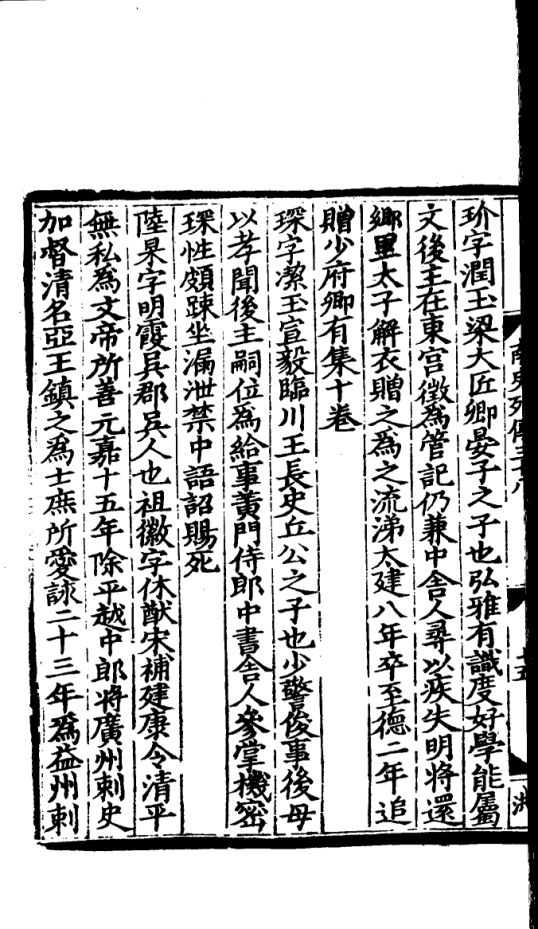 玠字潤玉梁大匠卿晏子之子也弘雅有識度好學能屬
文後主在東宮徵為管記仍兼中舍人尋以疾失明將還
鄉里太子解衣贈之為之流涕太建八年卒至德二年追
贈少府卿有集十卷
琛字潔玉宣毅臨川王長史丘公之子也少警俊事後母
以孝聞後主嗣位為給事黃門侍郎中書舍人參掌機密
琛性頗踈坐漏泄禁中語詔賜死
陸杲字明霞吳郡吳人也祖徽字休猷宋補建康令清平
無私為文帝所善元嘉十五年除平越中郎將廣州刺史
加督清名亞王鎮之為士庶所愛詠二十三年為益州刺